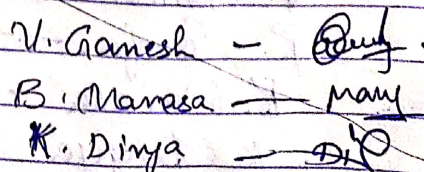 V. Ganesh -
B. Manasa - Many
K. Divya - Di